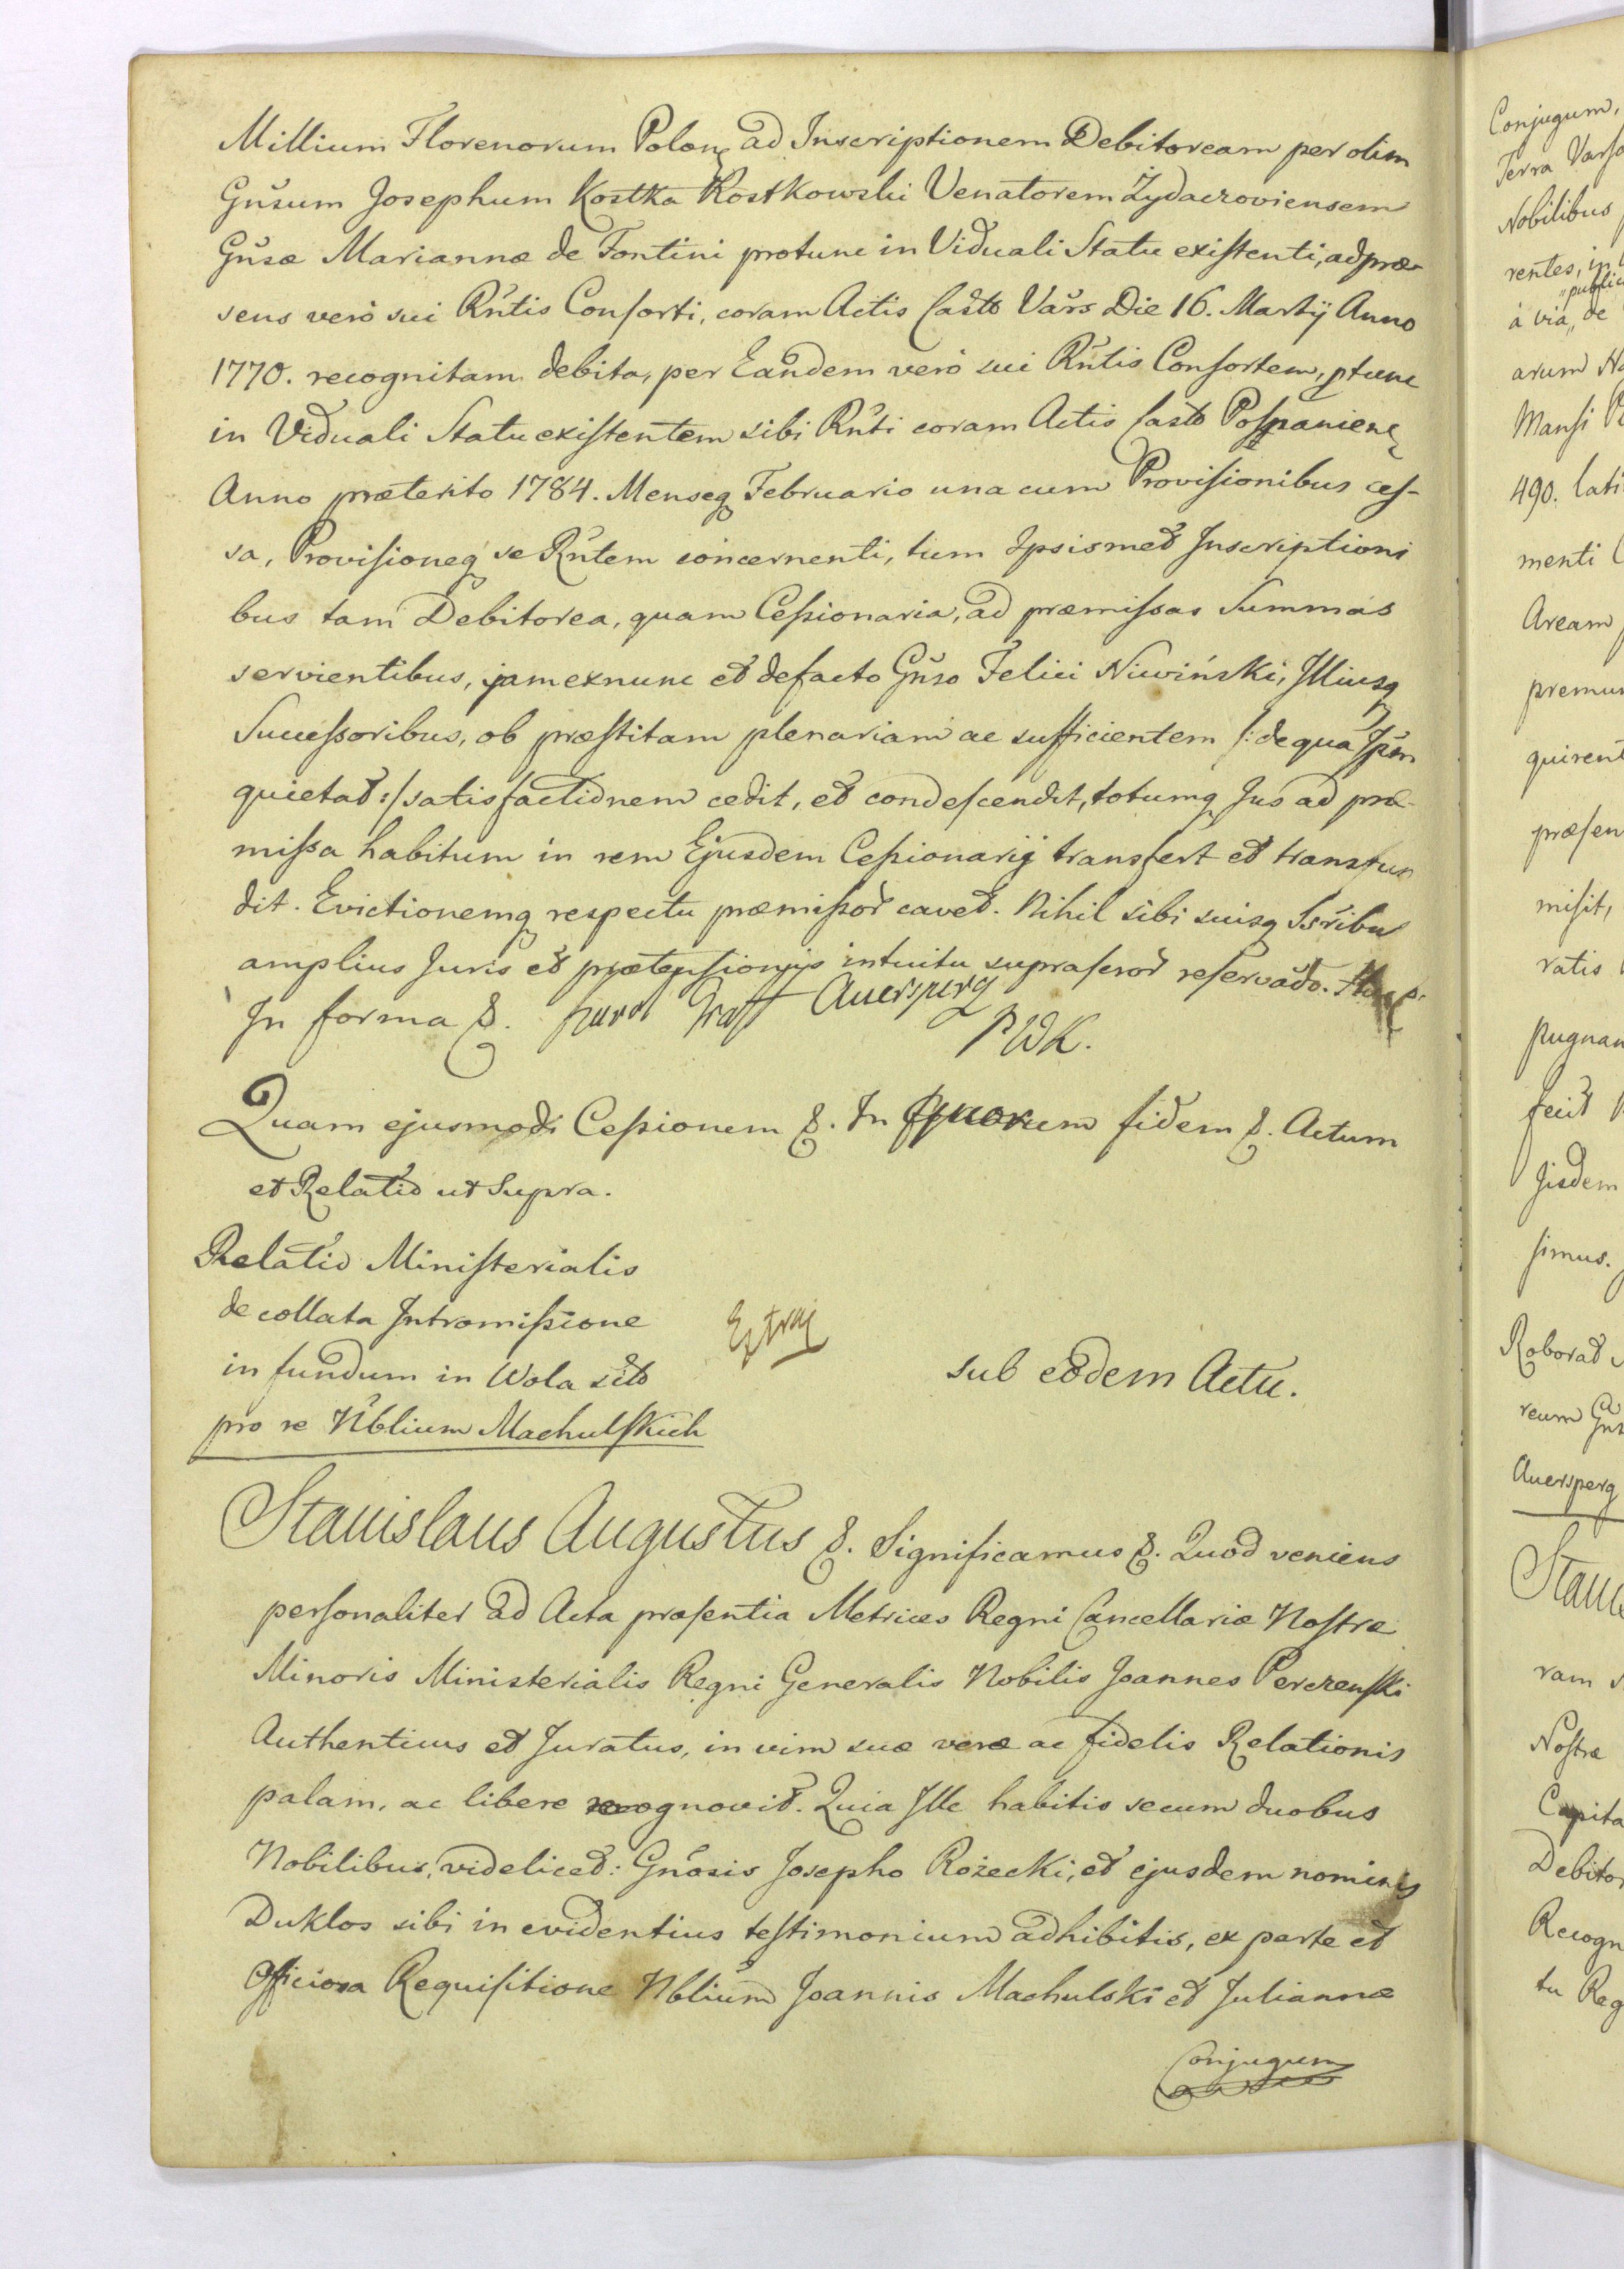 Millium Florenorum Polon: ad Inscriptionem Debitoream per olim
Gnsum Josephum Kostka Kostkowski Venatorem Zydaczoviensem
Gnsæ Mariannæ de Fontini protunc in Viduali Statu existenti, ad præ-
sens verò sui Rntis Consorti, coram Actis Castr Vars Die 16. Martij Anno
1770. recognitam debita, per Eandem verò sui Rntis Consortem, ptunc
in Viduali Statu existentem sibi Rnti coram Actis Castr
Anno præterito 1784. Menseq Februario una cum Provisionibus ces-
sa, Provisioneq se Rntem concernenti, tum Ipsismet Inscriptioni
bus tam Debitorea, quam Cessionaria, ad præmissas Summas
servientibus, jam exnunc et defacto Gnso Felici Niwiński, Illiusq
Successoribus, ob præstitam plenariam ac sufficientem /: de qua Ipsm
quietat :/ satisfactionem cedit, et condescendit, totumq Jus ad præ-
missa habitum in rem Ejusdem Cessionarij transfert et transfun
dit. Evictionemq respectu præmissor cavet. Nihil sibi suisq Ssribus
amplius Juris et prætensionis intuitu supraserod reservado.
In forma &. Auersperg
PWK.
Quam ejusmodi Cessionem &. In quorum fidem &. Actum
et Relatio ut Supra.
Relatio Ministerialis
de collata Intromissione
in fundum in Wola sito
pro re Nblium Machulskich
Extraj
sub eodem Actu.
Stanislaus Augustus &. Significamus &. Quod veniens
personaliter ad Acta præsentia Metrices Regni Cancellariæ Nostræ
Minoris Ministerialis Regni Generalis Nobilis Joannes Perczenski
Authenticus et Juratus, in vim suæ veræ ac fidelis Relationis
palam, ac libere recognovit. Quia Ille habitis secum duobus
Nobilibus, videlicet: Gnosis Josepho Rożecki, et ejusdem nominis
Duklos sibi in evidentius testimonium adhibitis, ex parte et
Officiosa Requisitione Nblium Joannis Machulski et Juliannæ
Conjugum
Conjugum,
Terra Varso
Nobilibus
rentes, in
publica
à via, de
arum
Mansi
490. lati
menti
Aream
premun
quirent
præsen
misit,
ratis
pugnan
fecit
Jisdem
simus.
Roborat
reum Gns
Auersperg
Stanis
ram
Nostræ
Capita
Debitor
Recogn
tu Reg